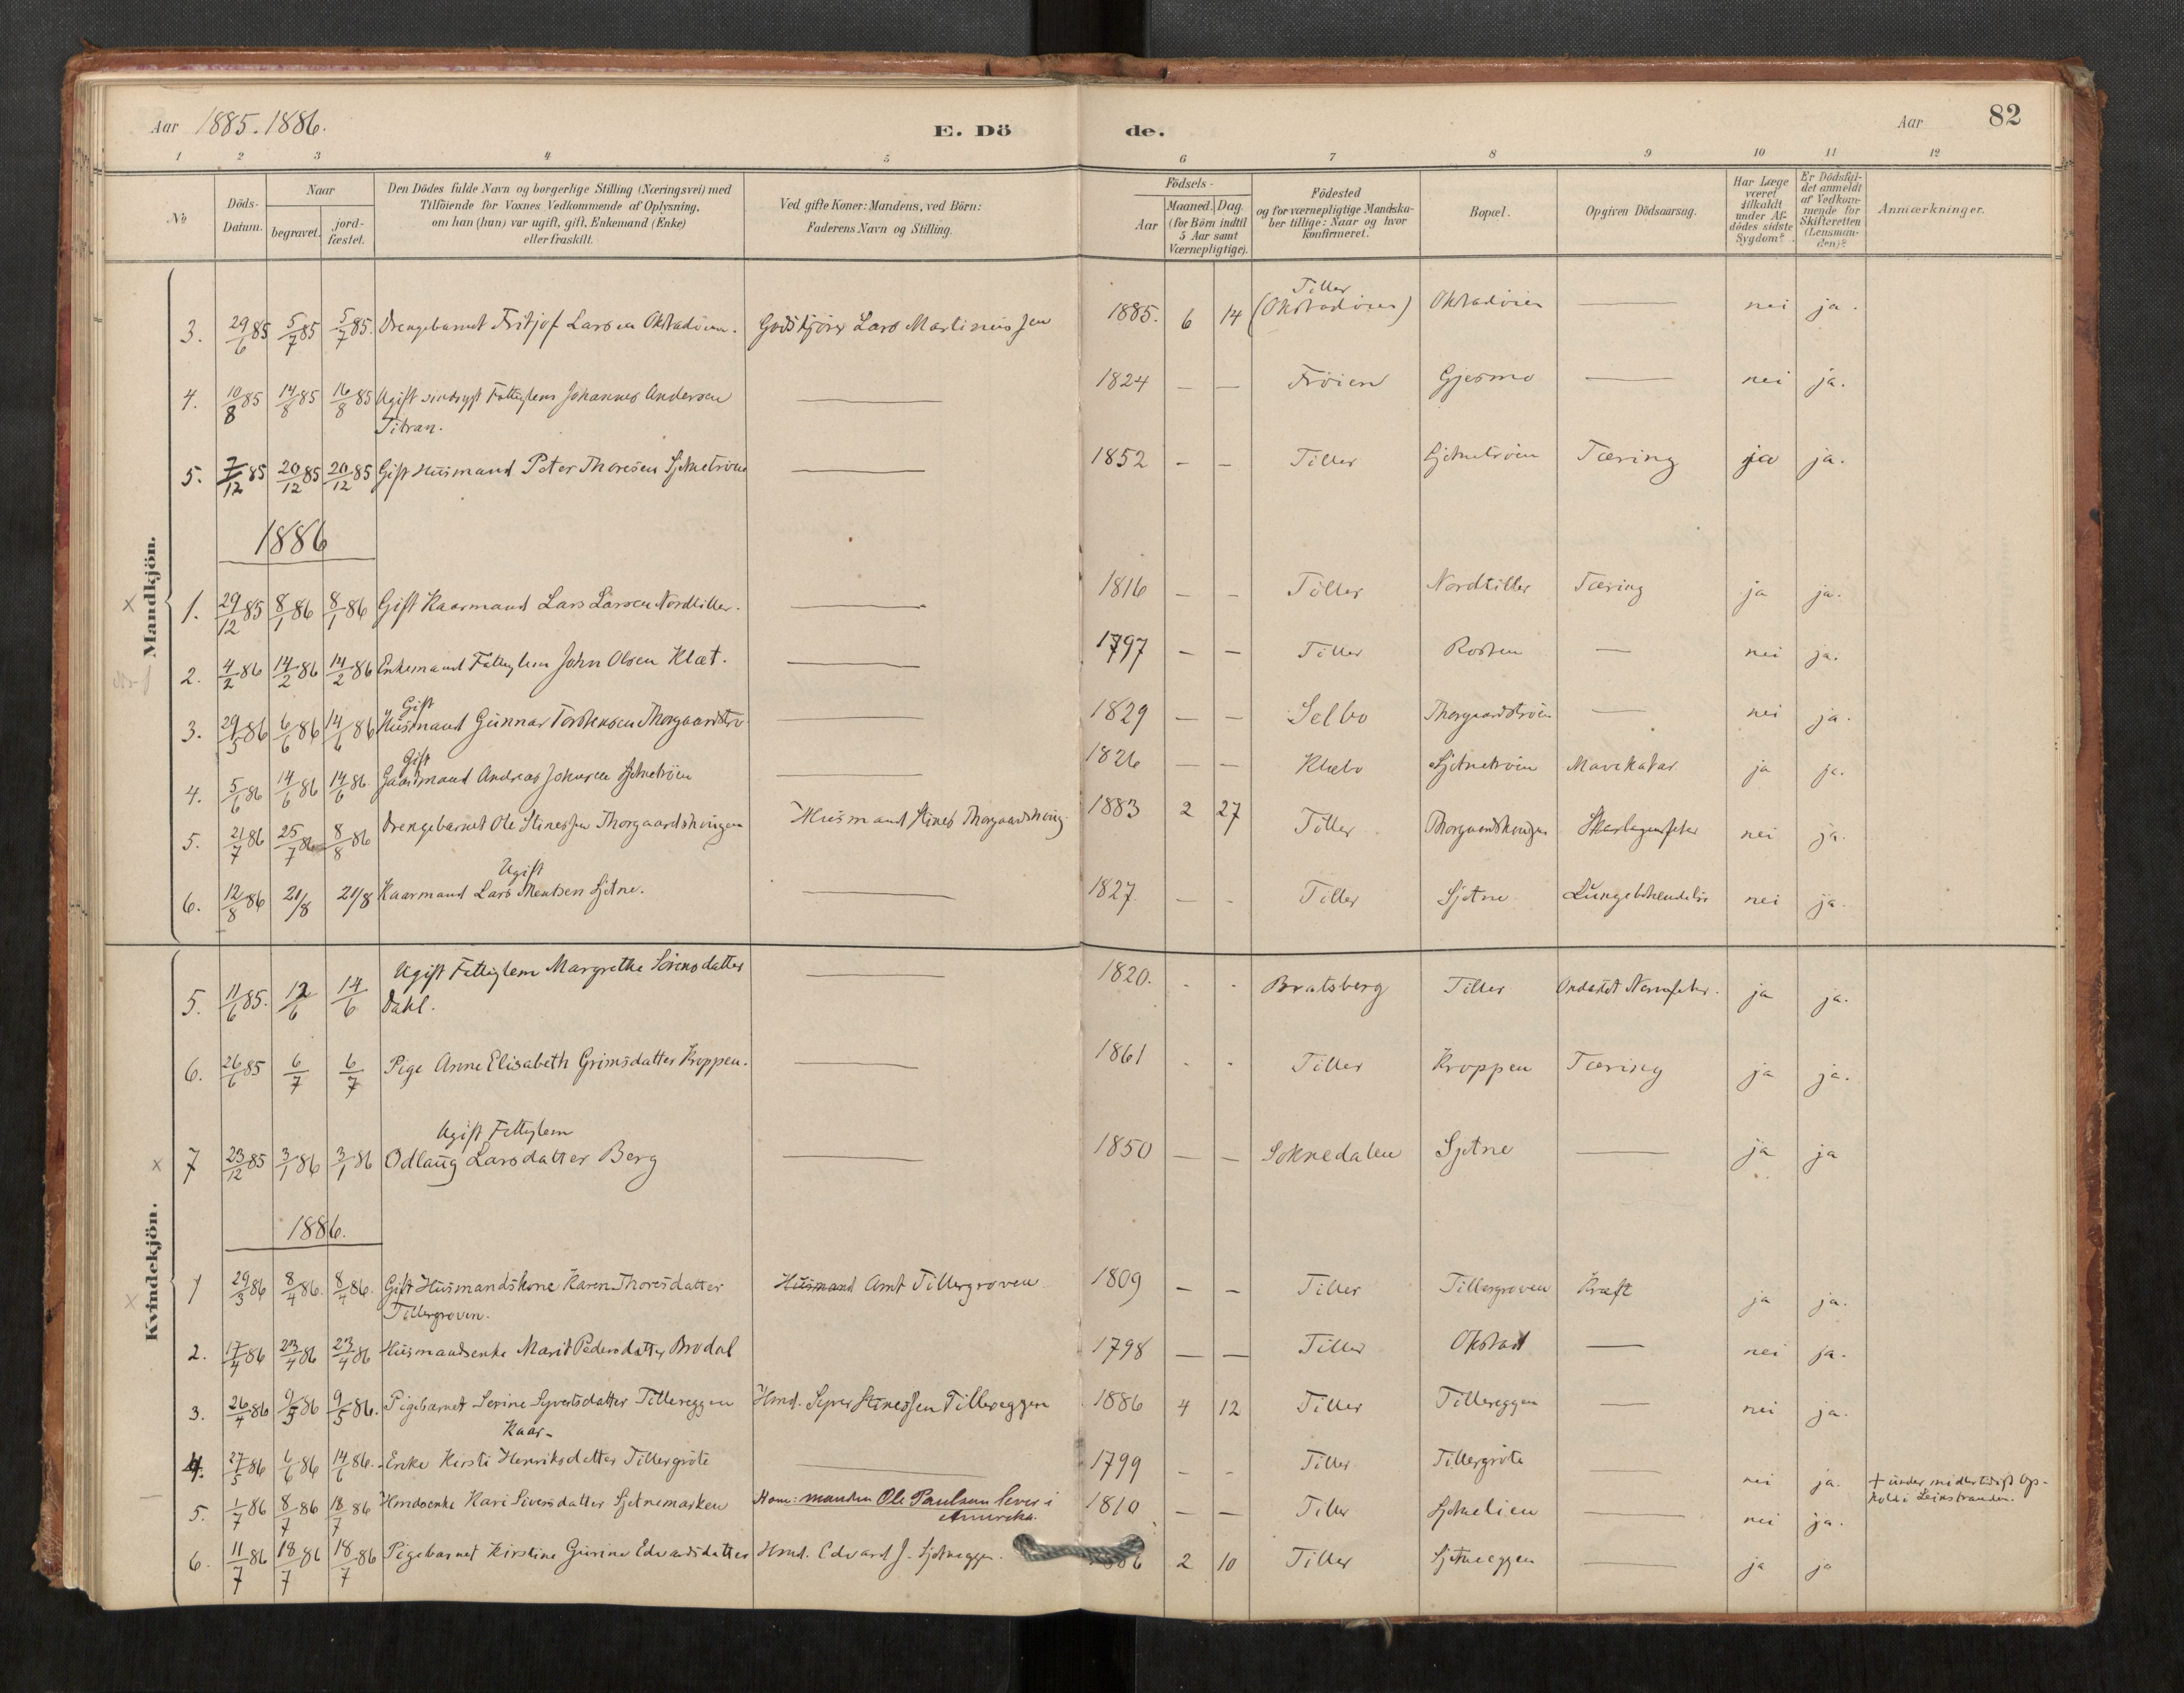 Aar 1885. 1886.
E. Dö de.
Aar 82
1 2 3 4 5 6 7 8 9 10 11 12
No
Döds-
Datum.
Naar
begravet.
jord-
fæstet.
Den Dödes fulde Navn og borgerlige Stilling (Næringsvei) med
Tilföiende for Voxnes Vedkommende af Oplysning,
om han (hun) var ugift, gift, Enkemand (Enke)
eller fraskilt.
Ved gifte Koner: Mandens, ved Börn:
Faderens Navn og Stilling.
Födsels-
Aar
Maaned. Dag.
(for Börn indtil
5 Aar samt
Værnepligtige).
Födested
og for værnepligtige Mandska-
ber tillige: Naar og hvor
konfirmeret.
Bopæl.
Opgiven Dödsaarsag.
Har Læge
været
tilkaldt
under Af-
dödes sidste
Sygdom?
Er Dödsfal-
det anmeldt
af Vedkom-
mende for
Skifteretten
(Lensman-
den)?
Anmærkninger.
Mandkjön.
Tiller
3. 29/6 85 5/7 85 5/7 85. Drengebarnet Fritjof Larsen Okstadöien. Godskjörer Lars Martinussen 1885. 6 14 (Okstadöien) Okstadöien — nei ja.
4. 10/8 85 14/8 85 16/8 85 Ugift sindsygt Fattiglem Johannes Andersen — 1824 — — Fröien Gjesmo — nei ja.
Titran.
5. 7/12 85 20/12 85 20/12 85 Gift Husmand Peter Thoresen Sjetnetröen — 1852 - - Tiller Sjetnetröen Tæring ja ja.
1886
1. 29/12 85 8/1 86 8/1 86 Gift Kaarmand Lars Larsen Nordtiller. — 1816 - - Tiller Nordtiller Tæring ja ja.
2. 4/2 86 14/2 86 14/2 86 Enkemand Fattiglem John Olsen Klæt. — 1797 — — Tiller Rosten — nei ja.
Gift
3. 29/5 86 6/6 86 14/6 86 Husmand Gunnar Torstensen Thorgaardströ — 1829 — — Selbo Thorgaardströen — nei ja.
Gift
4. 5/6 86 14/6 86 14/6 86. Gaardmand Andreas Johnsen Sjetnetröen — 1826 — — Klæbo Sjetnetröen Mavekatar ja ja.
5. 21/7 86 25/7 86 8/8 86 Drengebarnet Ole Stinessen Thorgaardshaugen Husmand Stines Thorgaardshaug. 1883 2 27 Tiller Thorgaardshaugen Skarlagensfeber nei ja.
Ugift
6. 12/8 86 21/8 21/8 Kaarmand Lars Mentsen Sjetne. — 1827. — - Tiller Sjetne Lungebetændelse nei ja.
Kvindekjön.
5. 11/6 85. 12/6 14/6 Ugift Fattiglem Margrethe Sörensdatter — 1820. - - Bratsberg Tiller Ondartet Nervefeber. ja ja.
Dahl.
6. 26/6 85 6/7 6/7 Pige Anne Elisabeth Grimsdatter Kroppen. — 1861 - - Tiller Kroppen Tæring ja ja.
Ugift Fattiglem
7 23/12 85 3/1 86 3/1 86 Odlaug Larsdatter Berg — 1850 — — Soknedalen Sjetne — ja ja
1886.
1 29/3 86 8/4 86. 8/4 86. Gift Husmandskone Karen Thoresdatter Husmand Arnt Tillergroven 1809 — — Tiller Tillergroven Kræft ja ja.
Tillergroven.
2. 17/4 86 23/4 86 23/4 86 Husmandsenke Marit Pedersdatter Brodal 1798 — — Tiller Okstad — nei ja.
3. 26/4 86 9/5 86 9/5 86. Pigebarnet Serine Syvertsdatter Tillereggen Hmd. Syver Stinessen Tillereggen 1886 4 12 Tiller Tillereggen — nei ja.
Kaar-
4. 27/5 86 6/6 86 14/6 86. Enke Kirsti Henriksdatter Tillergröte — 1799 - - Tiller Tillergröte — nei ja. + under midlertidigt Op-
hold i Leinstranden.
5. 1/7 86 8/7 86 18/7 86 Hmdsenke Kari Siversdatter Sjetnemarken manden Ole Paulsen lever i 1810 — — Tiller Sjetnelien — nei ja.
Amerika.
6. 11/7 86 18/7 86 18/7 86 Pigebarnet Kirstine Gurine Edvardsdatter Hmd. Edvard J. Sjetneggen. 1886 2 10 Tiller Sjetneeggen — ja ja